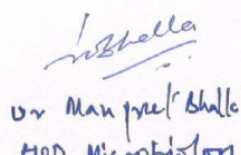 Bhalla
Dr Manpreet Bhalla
HOD Microbiology